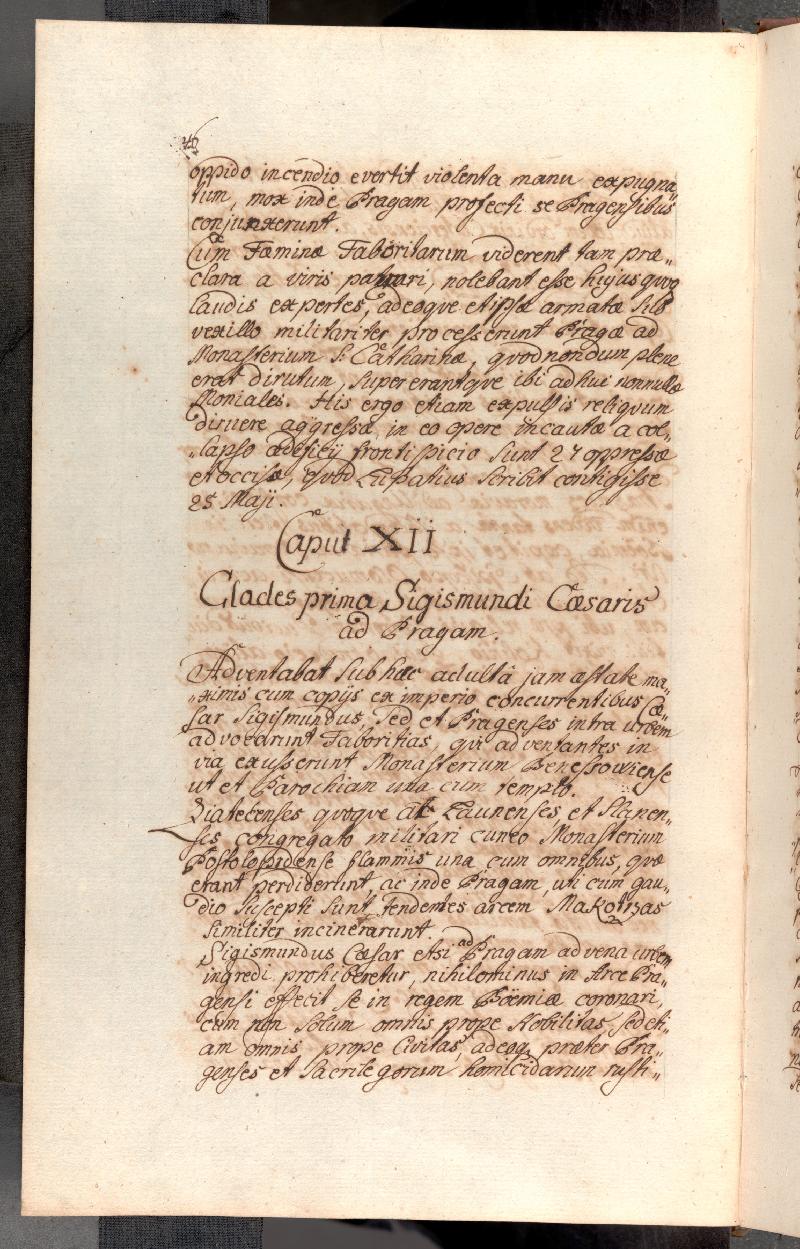 46
oppido incendio evertit violenta manu expugna„
tum, mox inde Pragam profecti se Pragensibus
conjunxerunt.
Cum Fæminæ Taboritarum viderent tam præ„
clara a viris patrari, nolebant esse hujus quoq
laudis expertes, adeoqve et ipsæ armatæ sub
vexillo militariter processerunt Pragæ ad
Monasterium S. Catharinæ, qvod nondum plene
erat dirutum, supererantqve ibi adhuc nonnullæ
Moniales. His ergo etiam expulsis reliqvum
diruere aggressæ, in eo opere incautæ a col„
„lapso ædificij frontispicio sunt 27 oppressæ
et occisæ, qvod Lupatius scribit contigisse
25 Maji.
Caput XII
Clades prima Sigismundi Cæsaris
ad Pragam.
Adventabat sub hæc adultâ jam æstate ma„
„ximis cum copijs ex imperio concurrentibus Cæ„
sar Sigismundus, sed et Pragenses intra urbem
advocarunt Taboritas, qvi adventantes in
via exusserunt Monasterium Benessowiense
ut et Parochiam una cum templo.
Ziatecenses qvoqve ac Launenses et Slanen„
ses congregato militari cuneo Monasterium
Postoloprtense flammis una cum omnibus, qvæ
erant perdiderunt, ac inde Pragam, uti cum gau„
dio suscepti sunt, tendentes arcem Makotrzas
similiter incinerarunt.
Sigismundus Cæsar etsi ad Pragam advena urbem
ingredi prohiberetur, nihilominus in Arce Pra„
gensi effecit se in regem Böemiæ coronari,
cum non solum omnis prope Nobilitas, sed et„
am omnis prope Civitas, adeoq præter Pra„
genses et sacrilegorum homicidarum rusti„